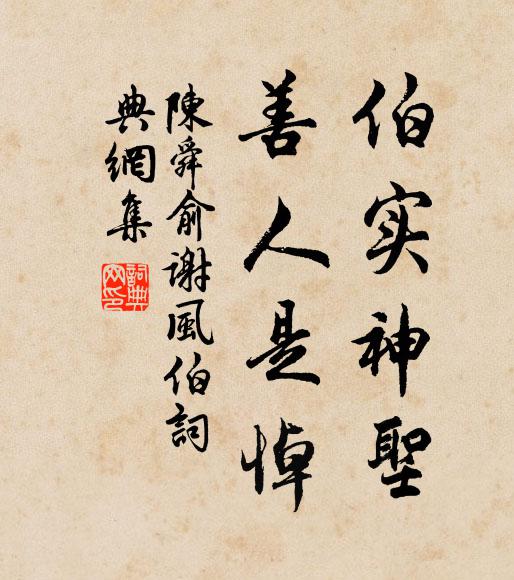 伯实神聖
善人是悼
陳舜俞謝風伯詞
典網集
詞典网印